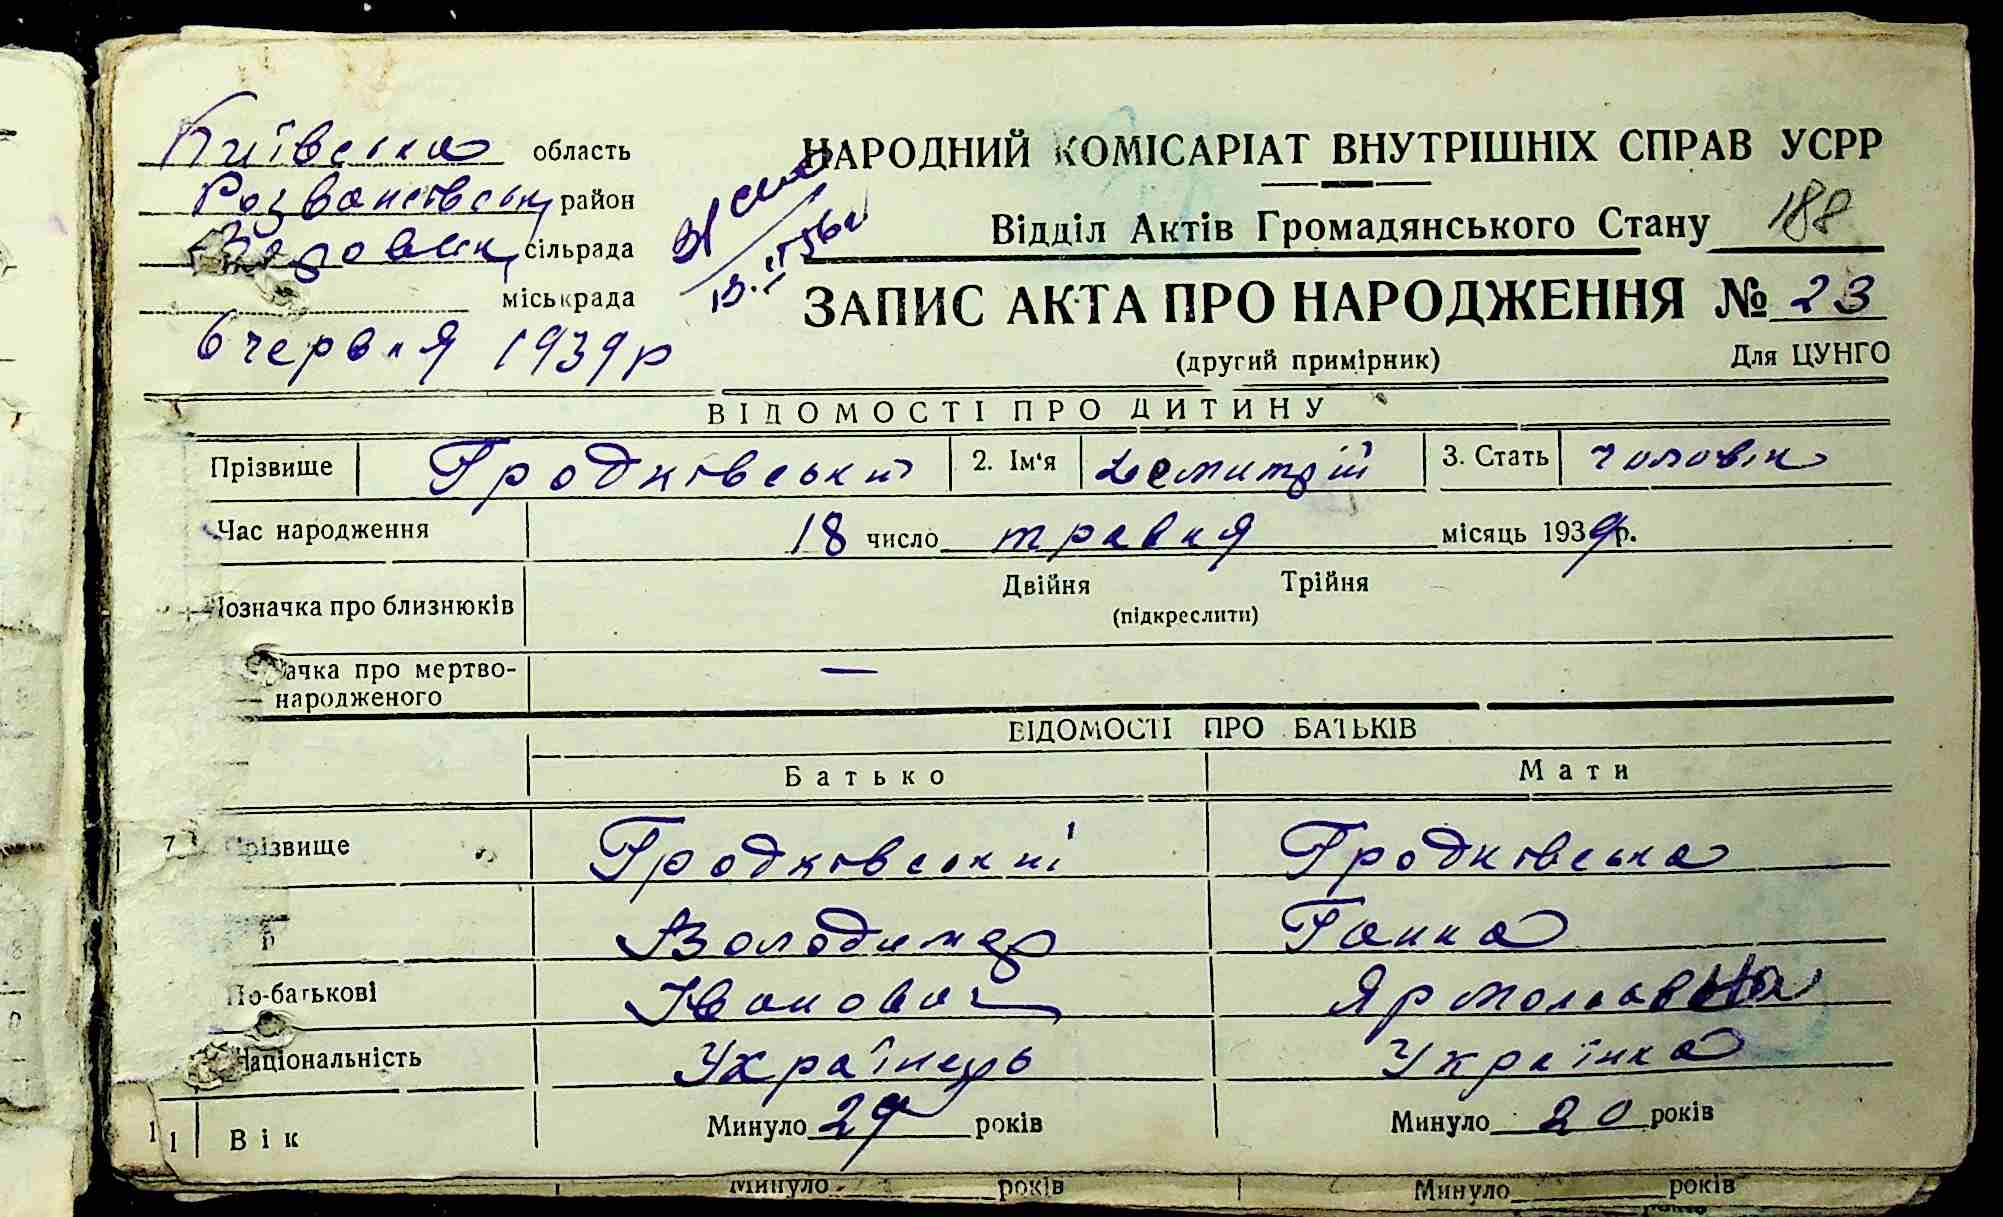 Київська область
Розважівськ район
сільрада
міськрада
6 червня 1939 р
НАРОДНИЙ КОМІСАРІАТ ВНУТРІШНІХ СПРАВ УСРР
Відділ Актів Громадянського Стану 188
ЗАПИС АКТА ПРО НАРОДЖЕННЯ № 23
(другий примірник) Для ЦУНГО
ВІДОМОСТІ ПРО ДИТИНУ
Прізвище Гродківський 2. Ім'я Демитрій 3. Стать чоловік
Час народження 18 число травня місяць 1939р.
Позначка про близнюків Двійня Трійня
(підкреслити)
ачка про мертво-
народженого —
ВІДОМОСТІ ПРО БАТЬКІВ
Батько Мати
7 Прізвище Гродківський Гродківська
Володимер Ганна
По-батькові Іванович Ярмолаевна
Національність Українець Українка
11 Вік Минуло 29 років Минуло 20 років
Минуло років Минуло років